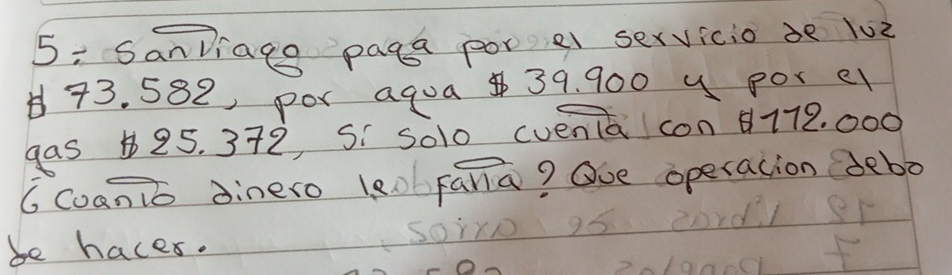 5: Santiago paga por el servicio de luz
$ 73.582, por agua $ 39.900 y por el
gas $ 25.372, Si solo cuenta con $112.000
¿Cuanto dinero le falta? Que operacion debo
de hacer.